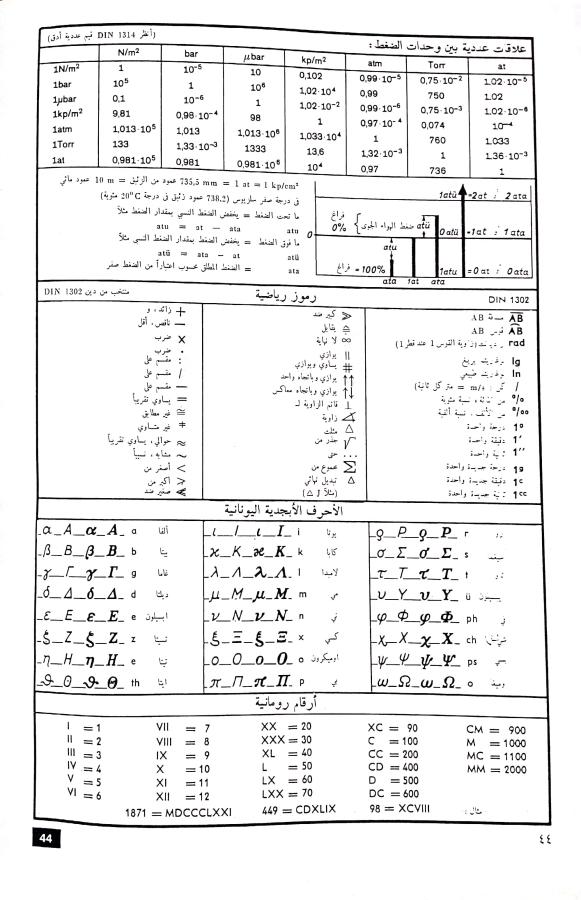 (أنظر DIN 1314 قيم عددية أدق)
علاقات عددية بين وحدات الضغط :
N/m² bar μbar kp/m² atm Torr at
1N/m² 1 10⁻⁵ 10 0,102 0,99·10⁻⁵ 0,75·10⁻² 1,02·10⁻⁵
1bar 10⁵ 1 10⁶ 1,02·10⁴ 0,99 750 1,02
1μbar 0,1 10⁻⁶ 1 1,02·10⁻² 0,99·10⁻⁶ 0,75·10⁻³ 1,02·10⁻⁶
1kp/m² 9,81 0,98·10⁻⁴ 98 1 0,97·10⁻⁴ 0,074 10⁻⁴
1atm 1,013·10⁵ 1,013 1,013·10⁶ 1,033·10⁴ 1 760 1,033
1Torr 133 1,33·10⁻³ 1333 13,6 1,32·10⁻³ 1 1,36·10⁻³
1at 0,981·10⁵ 0,981 0,981·10⁶ 10⁴ 0,97 736 1
735,5 mm = 1 at = 1 kp/cm² عمود من الزئبق = 10 m عمود مائي
في درجة صفر سلزيوس (738,2 عمود زئبق في درجة 20°C مئوية)
ما تحت الضغط = يخفض الضغط النسبي بمقدار الضغط مثلاً
atu = at — ata atu
ما فوق الضغط = يخفض الضغط بمقدار الضغط النسبي مثلاً
atü = ata — at atü
= الضغط المطلق محسوب اعتباراً من الضغط صفر ata
1atü =2at 2ata
فراغ 0% ضغط الهواء الجوي atü
0 0atü =1at 1ata
atu
فراغ = 100% 1atu =0at 0ata
ata 1at ata
منتخب من دين DIN 1302
رموز رياضية
DIN 1302
+ زائد، و
— ناقص، أقل
x ضرب
· ضرب
: مقسم على
/ مقسم على
— مقسم على
= يساوي تقريباً
≅ غير مطابق
≠ غير متساوي
≈ حوالي، يساوي تقريباً
~ مشابه، نسبياً
< أصغر من
> أكبر من
≪ صغير ضد
≫ كبير ضد
≙ يقابل
∞ لا نهاية
|| يوازي
# يساوي ويوازي
↑↑ يوازي وباتجاه واحد
↑↓ يوازي وباتجاه معاكس
⊥ قائم الزاوية لـ
∢ زاوية
△ مثلث
√ جذر من
... حتى
∑ مجموع من
Δ تبديل نهائي
(مثلاً Δ l)
AB مسافة AB
AB قوس AB
rad
lg
ln
/
% نسبة مئوية
‰ نسبة ألفية
1° درجة واحدة
1′ دقيقة واحدة
1″ واحدة
1g درجة جديدة واحدة
1c دقيقة جديدة واحدة
1cc جديدة واحدة
الأحرف الأبجدية اليونانية
α A α A a ألفا
β B β B b بيتا
γ Γ γ Γ g غاما
δ Δ δ Δ d ديلتا
ε E ε E e ابسيلون
ξ Z ξ Z z
η H η H e
ϑ Θ ϑ Θ th
ι I ι I i يوتا
ϰ K ϰ K k كابا
λ Λ λ Λ l لامبدا
μ M μ M m مي
ν N ν N n ني
ξ Ξ ξ Ξ x كسي
o O o O o اوميكرون
π Π π Π p بي
ϱ P ϱ P r
σ Σ σ Σ s
τ T τ T t
υ Y υ Y ü
φ Φ φ Φ ph
χ X χ X ch
ψ Ψ ψ Ψ ps
ω Ω ω Ω o
أرقام رومانية
I = 1 VII = 7 XX = 20 XC = 90 CM = 900
II = 2 VIII = 8 XXX = 30 C = 100 M = 1000
III = 3 IX = 9 XL = 40 CC = 200 MC = 1100
IV = 4 X = 10 L = 50 CD = 400 MM = 2000
V = 5 XI = 11 LX = 60 D = 500
VI = 6 XII = 12 LXX = 70 DC = 600
1871 = MDCCCLXXI 449 = CDXLIX 98 = XCVIII مثال :
44
٤٤